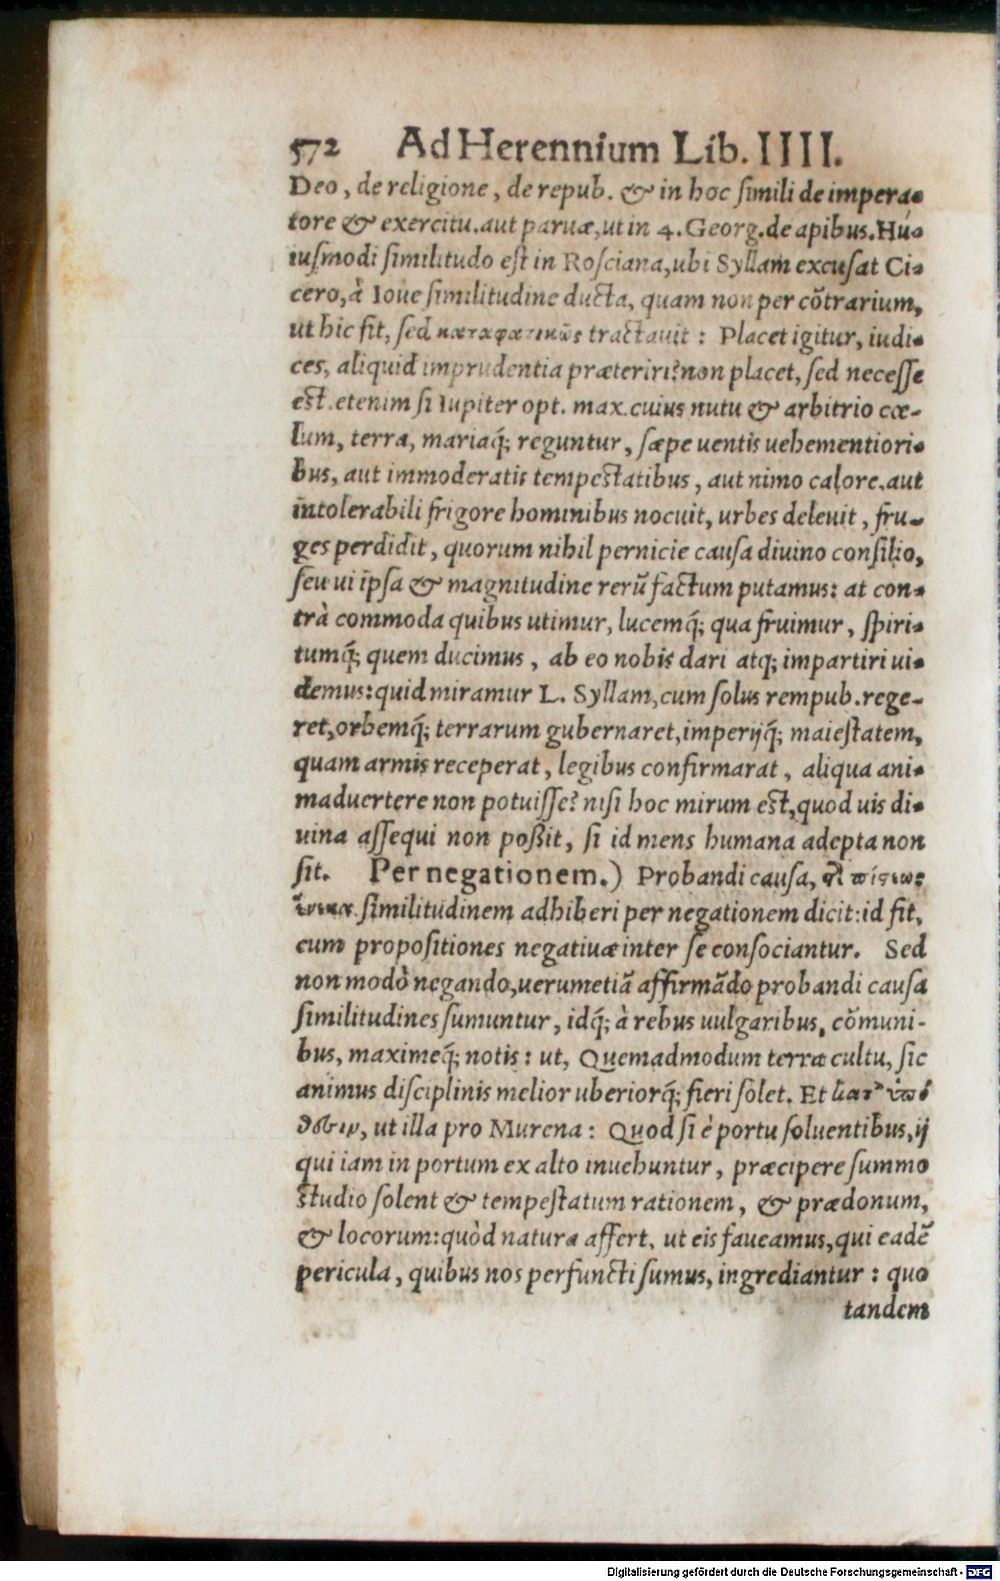 572 Ad Herennium Lib. IIII.
Deo, de religione, de repub. & in hoc simili de impera-
tore & exercitu. aut paruæ, ut in 4. Georg. de apibus. Hu-
iusmodi similitudo est in Rosciana, ubi Syllam excusat Ci-
cero, à Ioue similitudine ducta, quam non per cõtrarium,
ut hic fit, sed καταφατικῶς tractauit: Placet igitur, iudi-
ces, aliquid imprudentia præteriri? non placet, sed necesse
est. etenim si Iupiter opt. max. cuius nutu & arbitrio cœ-
lum, terra, mariaq́; reguntur, sæpe uentis uehementiori-
bus, aut immoderatis tempestatibus, aut nimo calore, aut
intolerabili frigore hominibus nocuit, urbes deleuit, fru-
ges perdidit, quorum nihil pernicie causa diuino consilio,
seu ui ipsa & magnitudine rerũ factum putamus: at con-
trà commoda quibus utimur, lucemq́; qua fruimur, spiri-
tumq́; quem ducimus, ab eo nobis dari atq; impartiri ui-
demus: quid miramur L. Syllam, cum solus rempub. rege-
ret, orbemq́; terrarum gubernaret, imperijq́; maiestatem,
quam armis receperat, legibus confirmarat, aliqua ani-
maduertere non potuisse? nisi hoc mirum est, quod uis di-
uina assequi non poßit, si id mens humana adepta non
sit. Per negationem.) Probandi causa, πίστεως
ἕνεκα similitudinem adhiberi per negationem dicit: id fit,
cum propositiones negatiuæ inter se consociantur. Sed
non modò negando, uerumetiã affirmãdo probandi causa
similitudines sumuntur, idq́; à rebus uulgaribus, cõmuni-
bus, maximeq́; notis: ut, Quemadmodum terra cultu, sic
animus disciplinis melior uberiorq́; fieri solet. Et
ut illa pro Murena: Quod si è portu soluentibus, ij
qui iam in portum ex alto inuehuntur, præcipere summo
studio solent & tempestatum rationem, & prædonum,
& locorum: quòd natura affert, ut eis faueamus, qui eadẽ
pericula, quibus nos perfuncti sumus, ingrediantur: quo
tandem
Digitalisierung gefördert durch die Deutsche Forschungsgemeinschaft - DFG